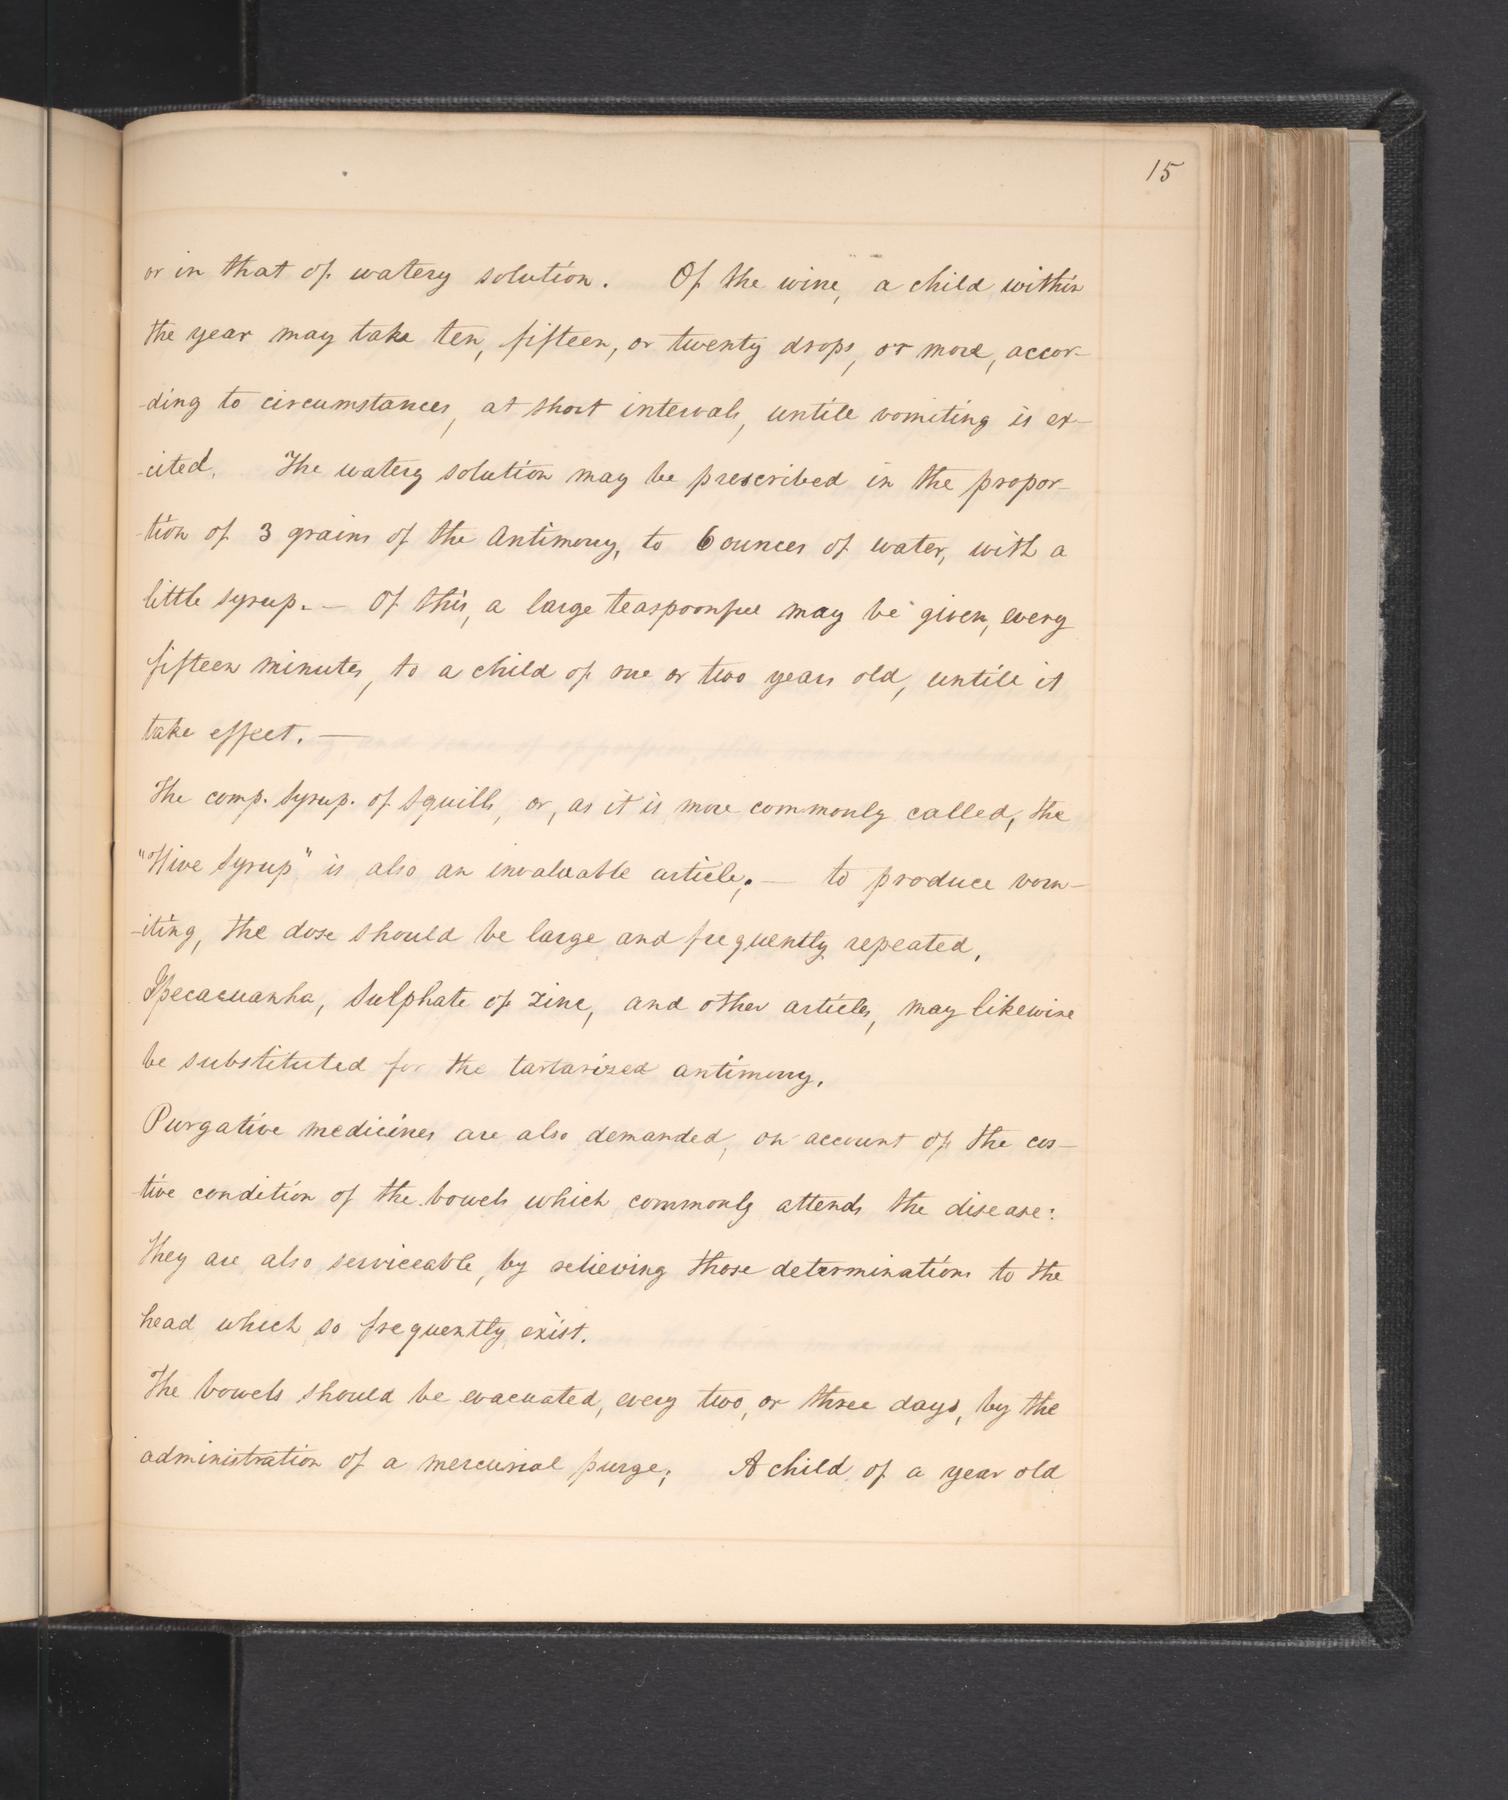 15
or in that of watery solution. Of the wine, a child within
the year may take ten, fifteen, or twenty drops, or more, accor-
-ding to circumstances, at short intervals, untill vomiting is ex-
-cited. The watery solution may be prescribed in the propor-
-tion of 3 grains of the Antimony, to 6 ounces of water, with a
little syrup. — Of this, a large teaspoonful may be given, every
fifteen minutes, to a child of one or two years old, untill it
take effect. —
The comp. syrup. of Squills, or, as it is more commonly called, the
"Hive Syrup" is also an invaluable article; — to produce vom-
-iting, the dose should be large and frequently repeated.
Ipecacuanha, Sulphate of zinc, and other articles, may likewise
be substituted for the tartarized antimony.
Purgative medicines are also demanded, on account of the cos-
-tive condition of the bowels which commonly attends the disease:
They are also serviceable, by relieving those determinations to the
head which so frequently exist.
The bowels should be evacuated, every two, or three days, by the
administration of a mercurial purge; A child of a year old